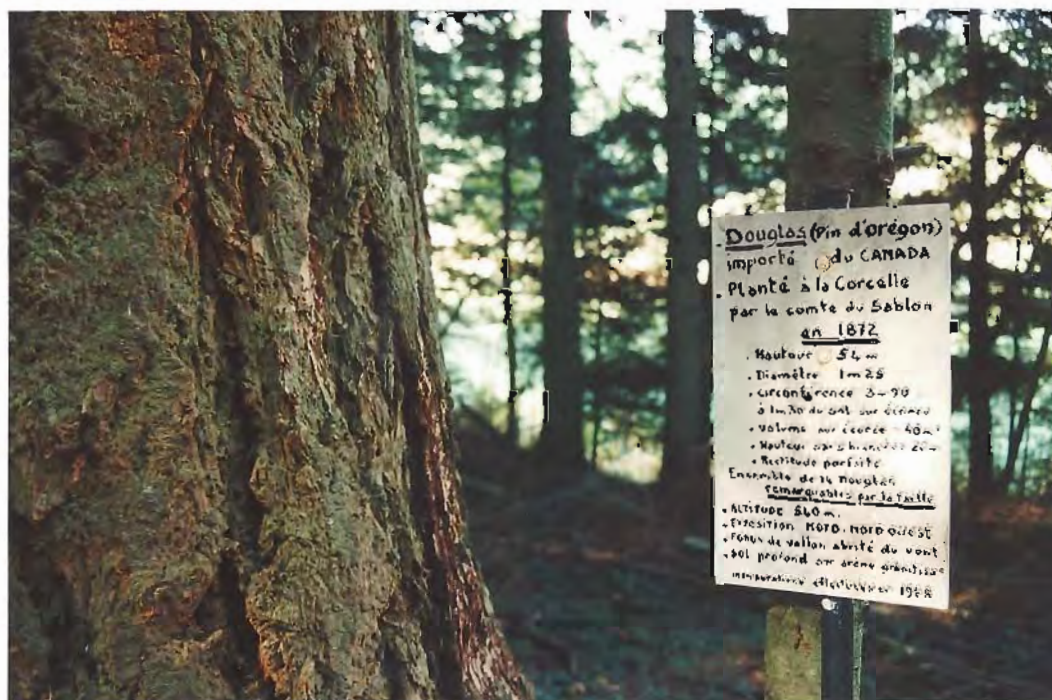 Douglas (Pin d'orégon)
importé du CANADA
Planté à la Corcelle
par le comte du Sablon
en 1872
. Hauteur 54 m
. Diamètre 1m25
. circonférence 3m90
à 1m30 du sol sur écorce
. volume sur écorce 40m³
. Hauteur sans branches 20m
. Rectitude parfaite
Ensemble de 14 Douglas
remarquables par la taille
. ALTITUDE 560 m.
. Exposition NORD. NORD OUEST
. FOND de vallon abrité du vent
. Sol profond sur arène granitique
effectuées en